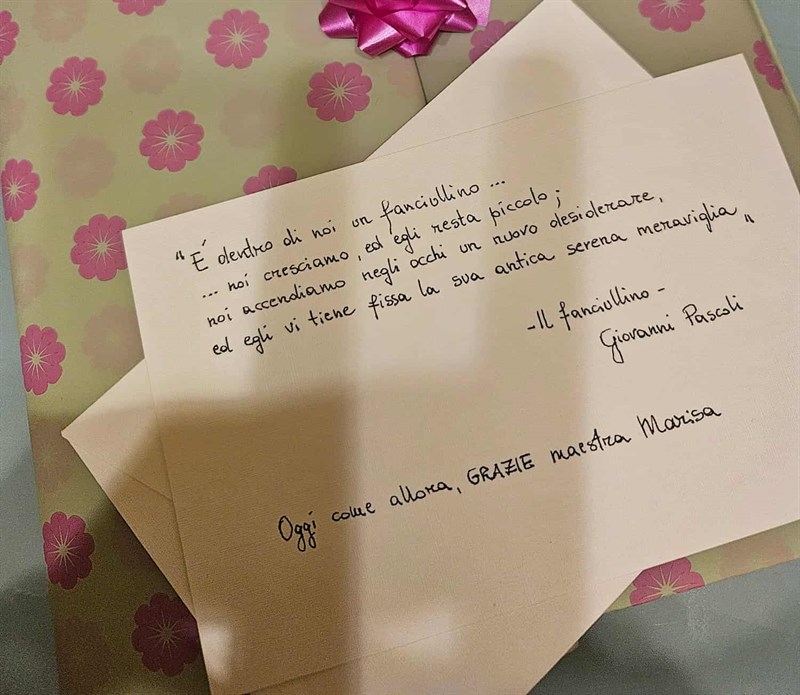 "É dentro di noi un fanciullino ...
... noi cresciamo, ed egli resta piccolo;
noi accendiamo negli occhi un nuovo desiderare,
ed egli vi tiene fissa la sua antica serena meraviglia"
- Il fanciullino -
Giovanni Pascoli
Oggi come allora, GRAZIE maestra Marisa